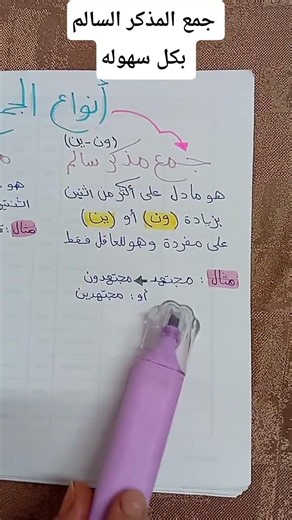 جمع المذكر السالم
بكل سهوله
أنواع الجم
(ون-ين)
جمع مذكر سالم
هو مادل على أكثر من اثنين
بزيادة (ون) أو (ين)
على مفردة وهو للعاقل فقط
مثال: مجتهد ← مجتهدون
أو: مجتهدين
مثال: